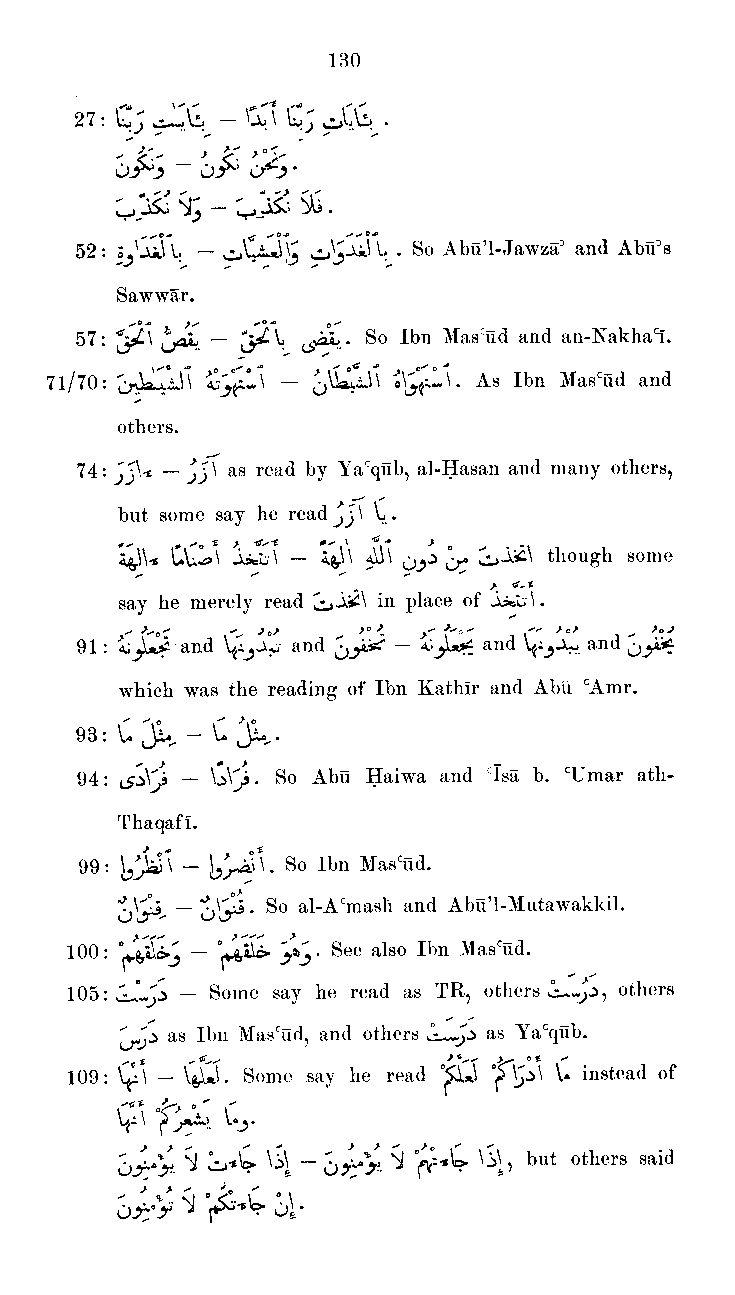 130
27: بِـَٔايَٰتِ رَبِّنَا — بِـَٔايَاتِ رَبِّنَا أَبَدًا.
وَنَكُونَ — وَنَحْنُ نَكُونُ.
وَلَا نُكَذِّبَ — فَلَا نُكَذِّبَ.
52: بِٱلْغَدَوٰةِ — بِٱلْغَدَوَاتِ وَٱلْعَشِيَّاتِ. So Abū’l-Jawzāʾ and Abūʾs
Sawwār.
57: يَقُصُّ ٱلْحَقَّ — يَقْضِى بِٱلْحَقِّ. So Ibn Masʿūd and an-Nakhaʿī.
71/70: ٱسْتَهْوَتْهُ ٱلشَّيَٰطِينُ — ٱسْتَهْوَاهُ ٱلشَّيْطَانُ. As Ibn Masʿūd and
others.
74: ءَازَرَ — آزَرُ as read by Yaʿqūb, al-Ḥasan and many others,
but some say he read يَا آزَرُ.
أَتَتَّخِذُ أَصْنَامًا ءَالِهَةً — اتخذتَ مِنْ دُونِ ٱللَّهِ آلِهَةً though some
say he merely read اتخذتَ in place of أَتَتَّخِذُ.
91: تَجْعَلُونَهُ and تُبْدُونَهَا and تُخْفُونَ — يَجْعَلُونَهُ and يُبْدُونَهَا and يُخْفُونَ
which was the reading of Ibn Kathīr and Abū ʿAmr.
93: مِثْلَ مَا — مِثْلُ مَا.
94: فُرَادَى — فُرَادًا. So Abū Ḥaiwa and ʿĪsā b. ʿUmar ath-
Thaqafī.
99: ٱنْظُرُوا — أَنْضِرُوا. So Ibn Masʿūd.
قِنْوَانٌ — قُنْوَانٌ. So al-Aʿmash and Abū’l-Mutawakkil.
100: وَخَلَقَهُمْ — وَهُوَ خَلَقَهُمْ. See also Ibn Masʿūd.
105: دَرَسْتَ — Some say he read as TR, others دَرُسَتْ, others
دَرَسَ as Ibn Masʿūd, and others دَرَسَتْ as Yaʿqūb.
109: أَنَّهَا — لَعَلَّهَا. Some say he read مَا أَدْرَاكُمْ لَعَلَّكُمْ instead of
وَمَا يُشْعِرُكُمْ أَنَّهَا.
إِذَا جَاءَتْ لَا يُؤْمِنُونَ — إِذَا جَاءَتْهُمْ لَا يُؤْمِنُونَ, but others said
إِنْ جَاءَتكُمْ لَا تُؤْمِنُونَ.